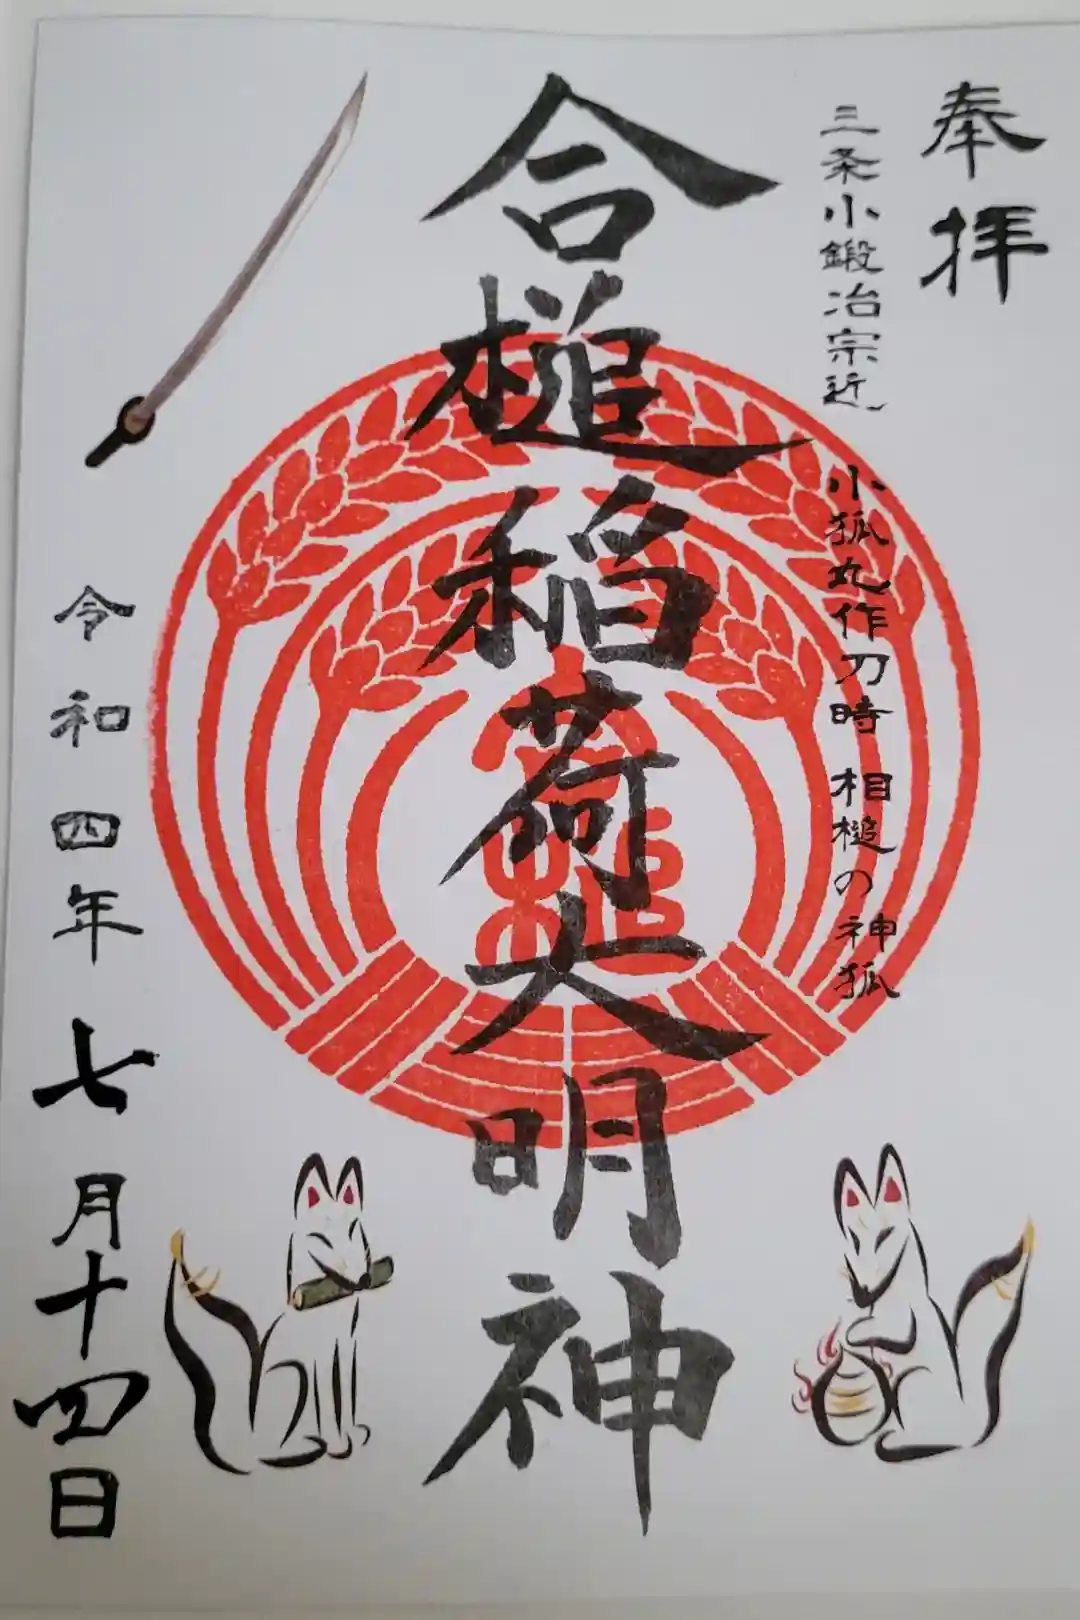 奉拝
三条小鍛冶宗近
小狐丸作刀時 相槌の神狐
合槌稲荷大明神
令和四年七月十四日